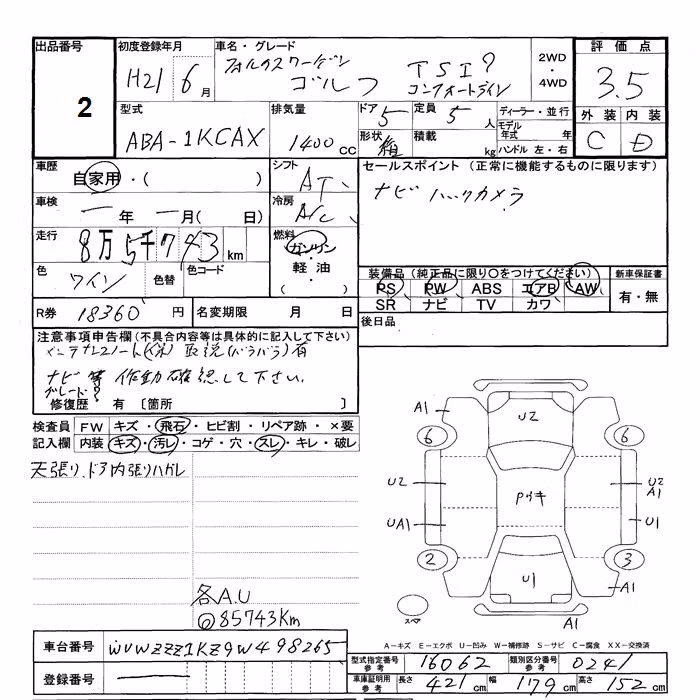 出品番号
2
初度登録年月
H21 6月
車名・グレード
フォルクスワーゲン
ゴルフ
TSI?
コンフォートライン
2WD
・
4WD
評価点
3.5
外装 内装
C D
型式
ABA-1KCAX
排気量
1400cc
ドア 5
定員 5人
形状
積載 kg
ディーラー・並行
モデル年式 年
ハンドル 左・右
車歴
自家用・( )
シフト
AT
セールスポイント (正常に機能するものに限ります)
ナビ バックカメラ
車検
一年 一月( 日)
冷房
A/C
走行
8万5千743km
燃料
ガソリン
・
軽油
( )
色
ワイン
色替
色コード
装備品 (純正品に限り○をつけてください)
PS PW ABS エアB AW
SR ナビ TV カワ
新車保証書
有・無
R券 18360円
名変期限 月 日
後日品
注意事項申告欄 (不具合内容等は具体的に記入して下さい)
取説(バラバラ)有
ナビ等 作動確認して下さい.
グレード?
修復歴・有 [箇所 ]
検査員記入欄
FW キズ・飛石・ヒビ割・リペア跡・×要
内装 キズ・汚レ・コゲ・穴・スレ・キレ・破レ
天張り、ドア内張りハガレ
各A.U
85743Km
A1
U2
6
6
U2
Pウキ
U2
A1
UA1
U1
2
3
U1
A1
A1
スペア
A-キズ E-エクボ U-凹み W-補修跡 S-サビ C-腐食 XX-交換済
車台番号
WVWZZZ1KZ9W498265
登録番号
型式指定番号 参考 16062
類別区分番号 参考 0241
車庫証明用 参考
長さ 421cm
幅 179cm
高さ 152cm